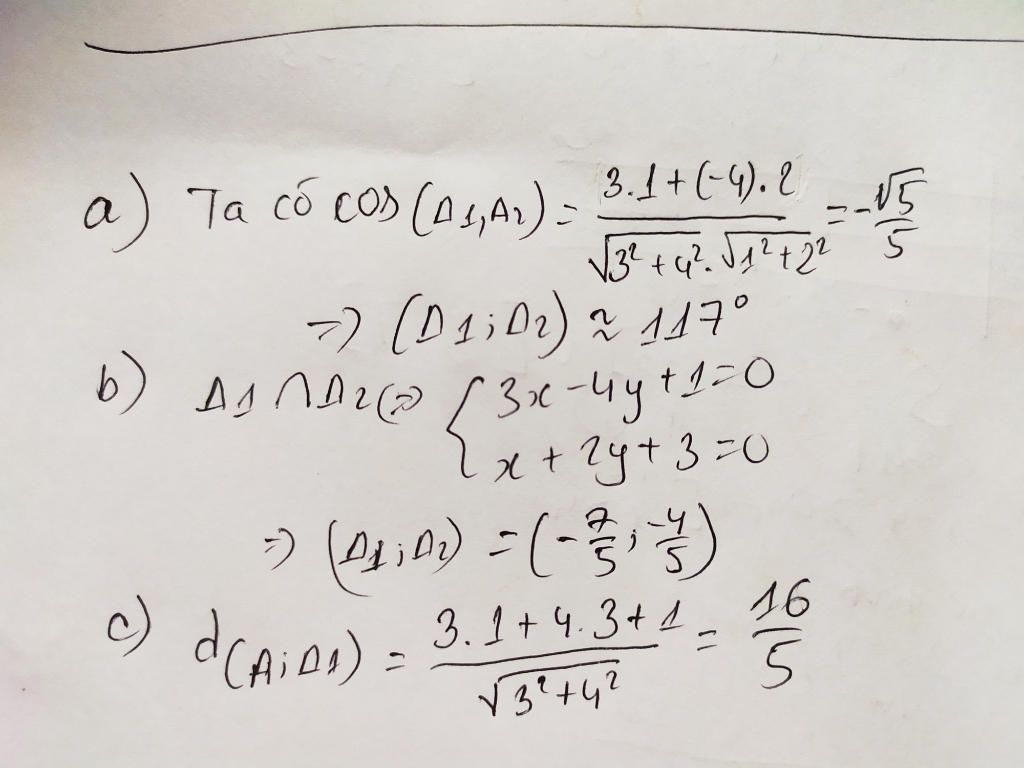 a) Ta có cos(Δ1,Δ2) = \frac{3.1+(-4).2}{\sqrt{3²+4²}.\sqrt{1²+2²}} = -\frac{\sqrt{5}}{5}
=> (Δ1;Δ2) ≈ 117°
b) Δ1 ∩ Δ2 <=> { 3x - 4y + 1 = 0
x + 2y + 3 = 0
=> (Δ1;Δ2) = (-\frac{7}{5}; \frac{-4}{5})
c) d(A;Δ1) = \frac{3.1+4.3+1}{\sqrt{3²+4²}} = \frac{16}{5}